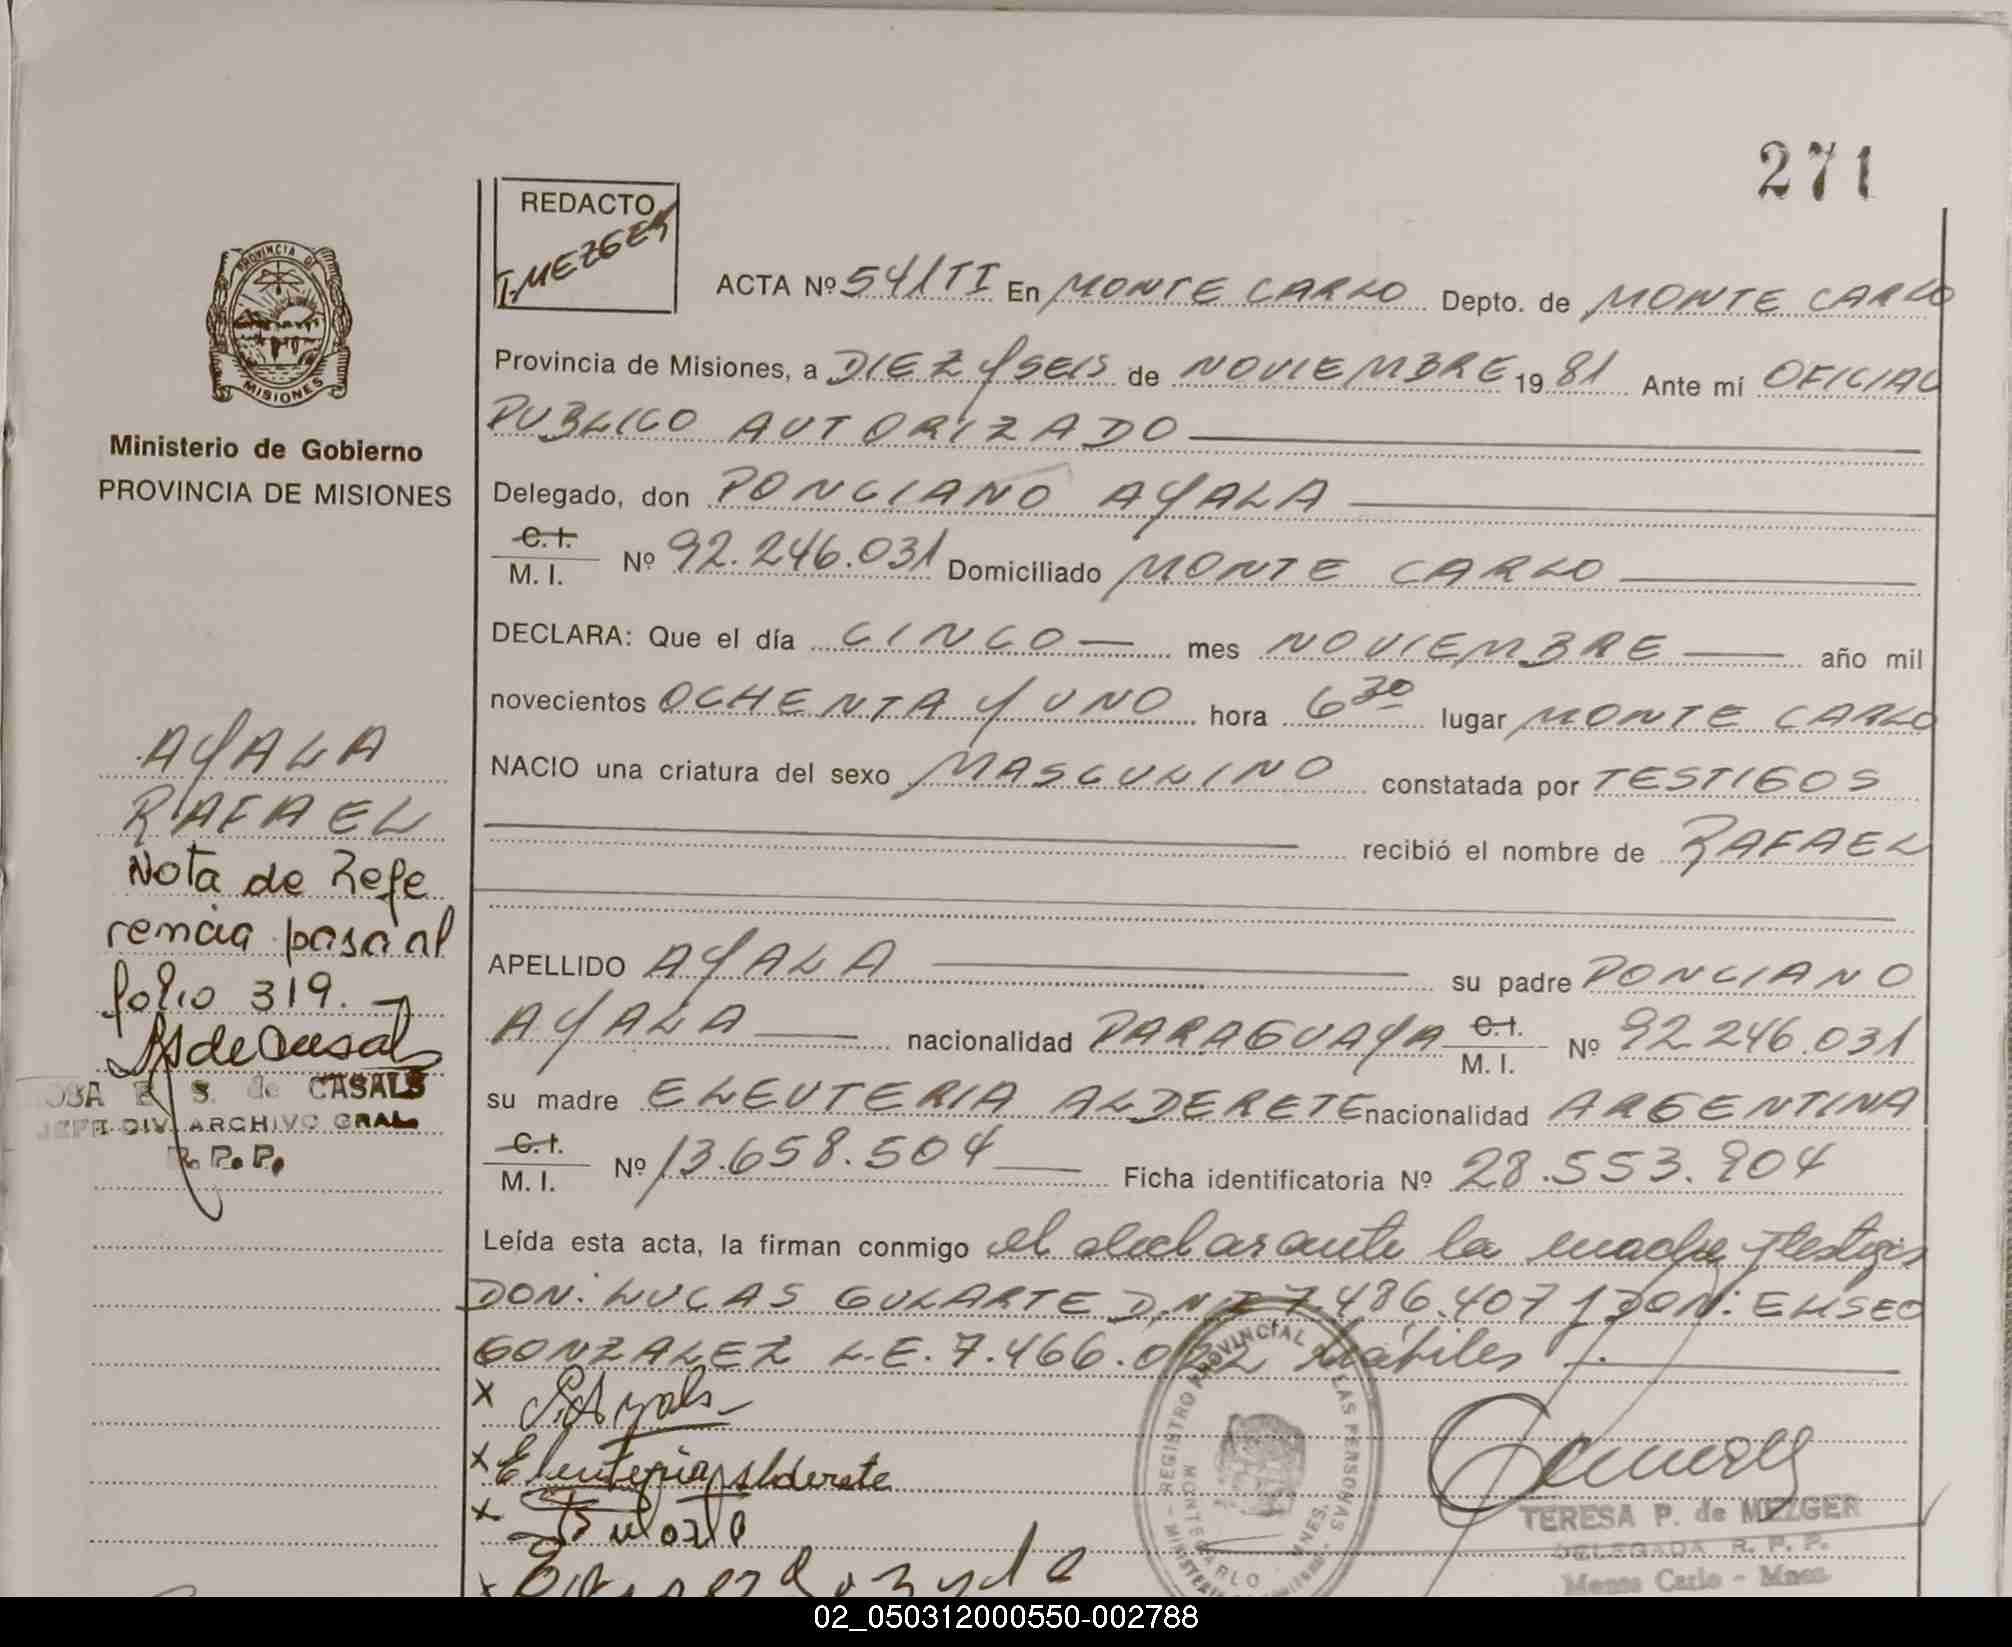 271
REDACTO
T. MEZGER
ACTA Nº 541 TI En MONTE CARLO Depto. de MONTE CARLO
Provincia de Misiones, a DIEZ Y SEIS de NOVIEMBRE 19 81 Ante mí OFICIAL
PUBLICO AUTORIZADO
Delegado, don PONCIANO AYALA
C.I.
M. I. Nº 92.246.031 Domiciliado MONTE CARLO
DECLARA: Que el día CINCO mes NOVIEMBRE año mil
novecientos OCHENTA Y UNO hora 6 30 lugar MONTE CARLO
NACIO una criatura del sexo MASCULINO constatada por TESTIGOS
recibió el nombre de RAFAEL
APELLIDO AYALA su padre PONCIANO
AYALA nacionalidad PARAGUAYA C.I. M. I. Nº 92.246.031
su madre ELEUTERIA ALDERETE nacionalidad ARGENTINA
C.I.
M. I. Nº 13.658.504 Ficha identificatoria Nº 28.553.904
Leída esta acta, la firman conmigo el declarante la madre y testigos
DON: LUCAS GULARTE D.N.I 7.486.407 y DON: ELISEO
GONZALEZ L.E. 7.466. hábiles
X
X Eleuteria Alderete
X
X
PROVINCIA DE
MISIONES
Ministerio de Gobierno
PROVINCIA DE MISIONES
AYALA
RAFAEL
Nota de Refe
rencia pasa al
folio 319.
S. de CASALS
JEFE DIV. ARCHIVO GRAL.
R. P. P.
REGISTRO PROVINCIAL LAS PERSONAS
MONTE CARLO MNES.
TERESA P. de MEZGER
DELEGADA R. P. P.
Monte Carlo - Mnes
02_050312000550-002788